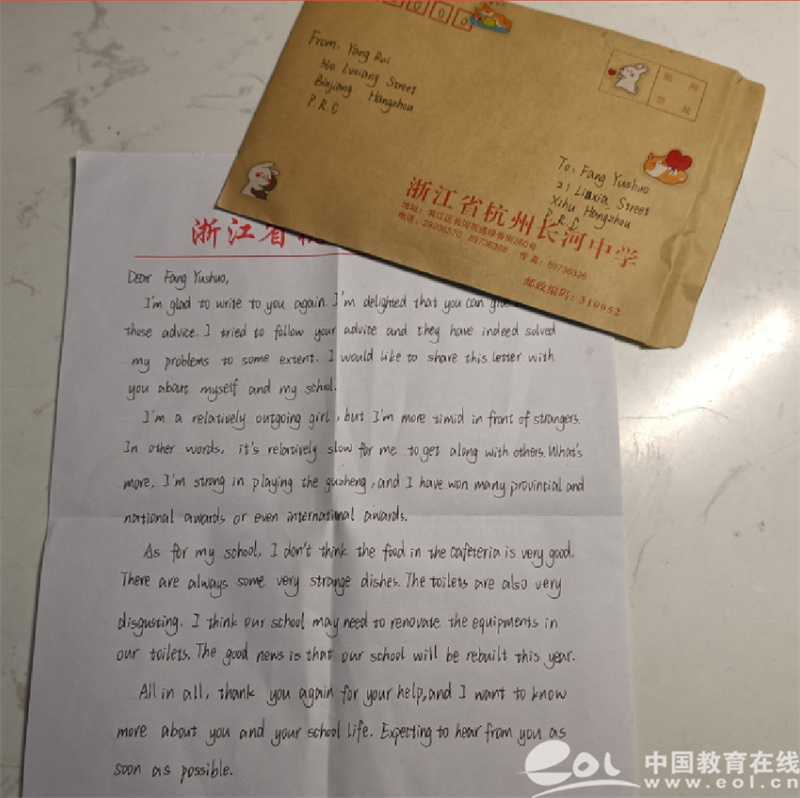 From: Yang Rui
360 Lvxiang Street
Binjiang Hangzhou
P.R.C
To: Fang Yushuo
21 Linxia Street
Xihu Hangzhou
P.R.C
浙江省杭州长河中学
地址：滨江区长河街道绿香街360号
传真：
邮政编码：310052
浙江省杭
Dear Fang Yushuo,
I'm glad to write to you again. I'm delighted that you can
those advice. I tried to follow your advice and they have indeed solved
my problems to some extent. I would like to share this letter with
you about myself and my school.
I'm a relatively outgoing girl, but I'm more timid in front of strangers.
In other words, it's relatively slow for me to get along with others. What's
more, I'm strong in playing the guzheng, and I have won many provincial and
national awards or even international awards.
As for my school, I don't think the food in the cafeteria is very good.
There are always some very strange dishes. The toilets are also very
disgusting. I think our school may need to renovate the equipments in
our toilets. The good news is that our school will be rebuilt this year.
All in all, thank you again for your help, and I want to know
more about you and your school life. Expecting to hear from you as
soon as possible.
eol 中国教育在线
www.eol.cn